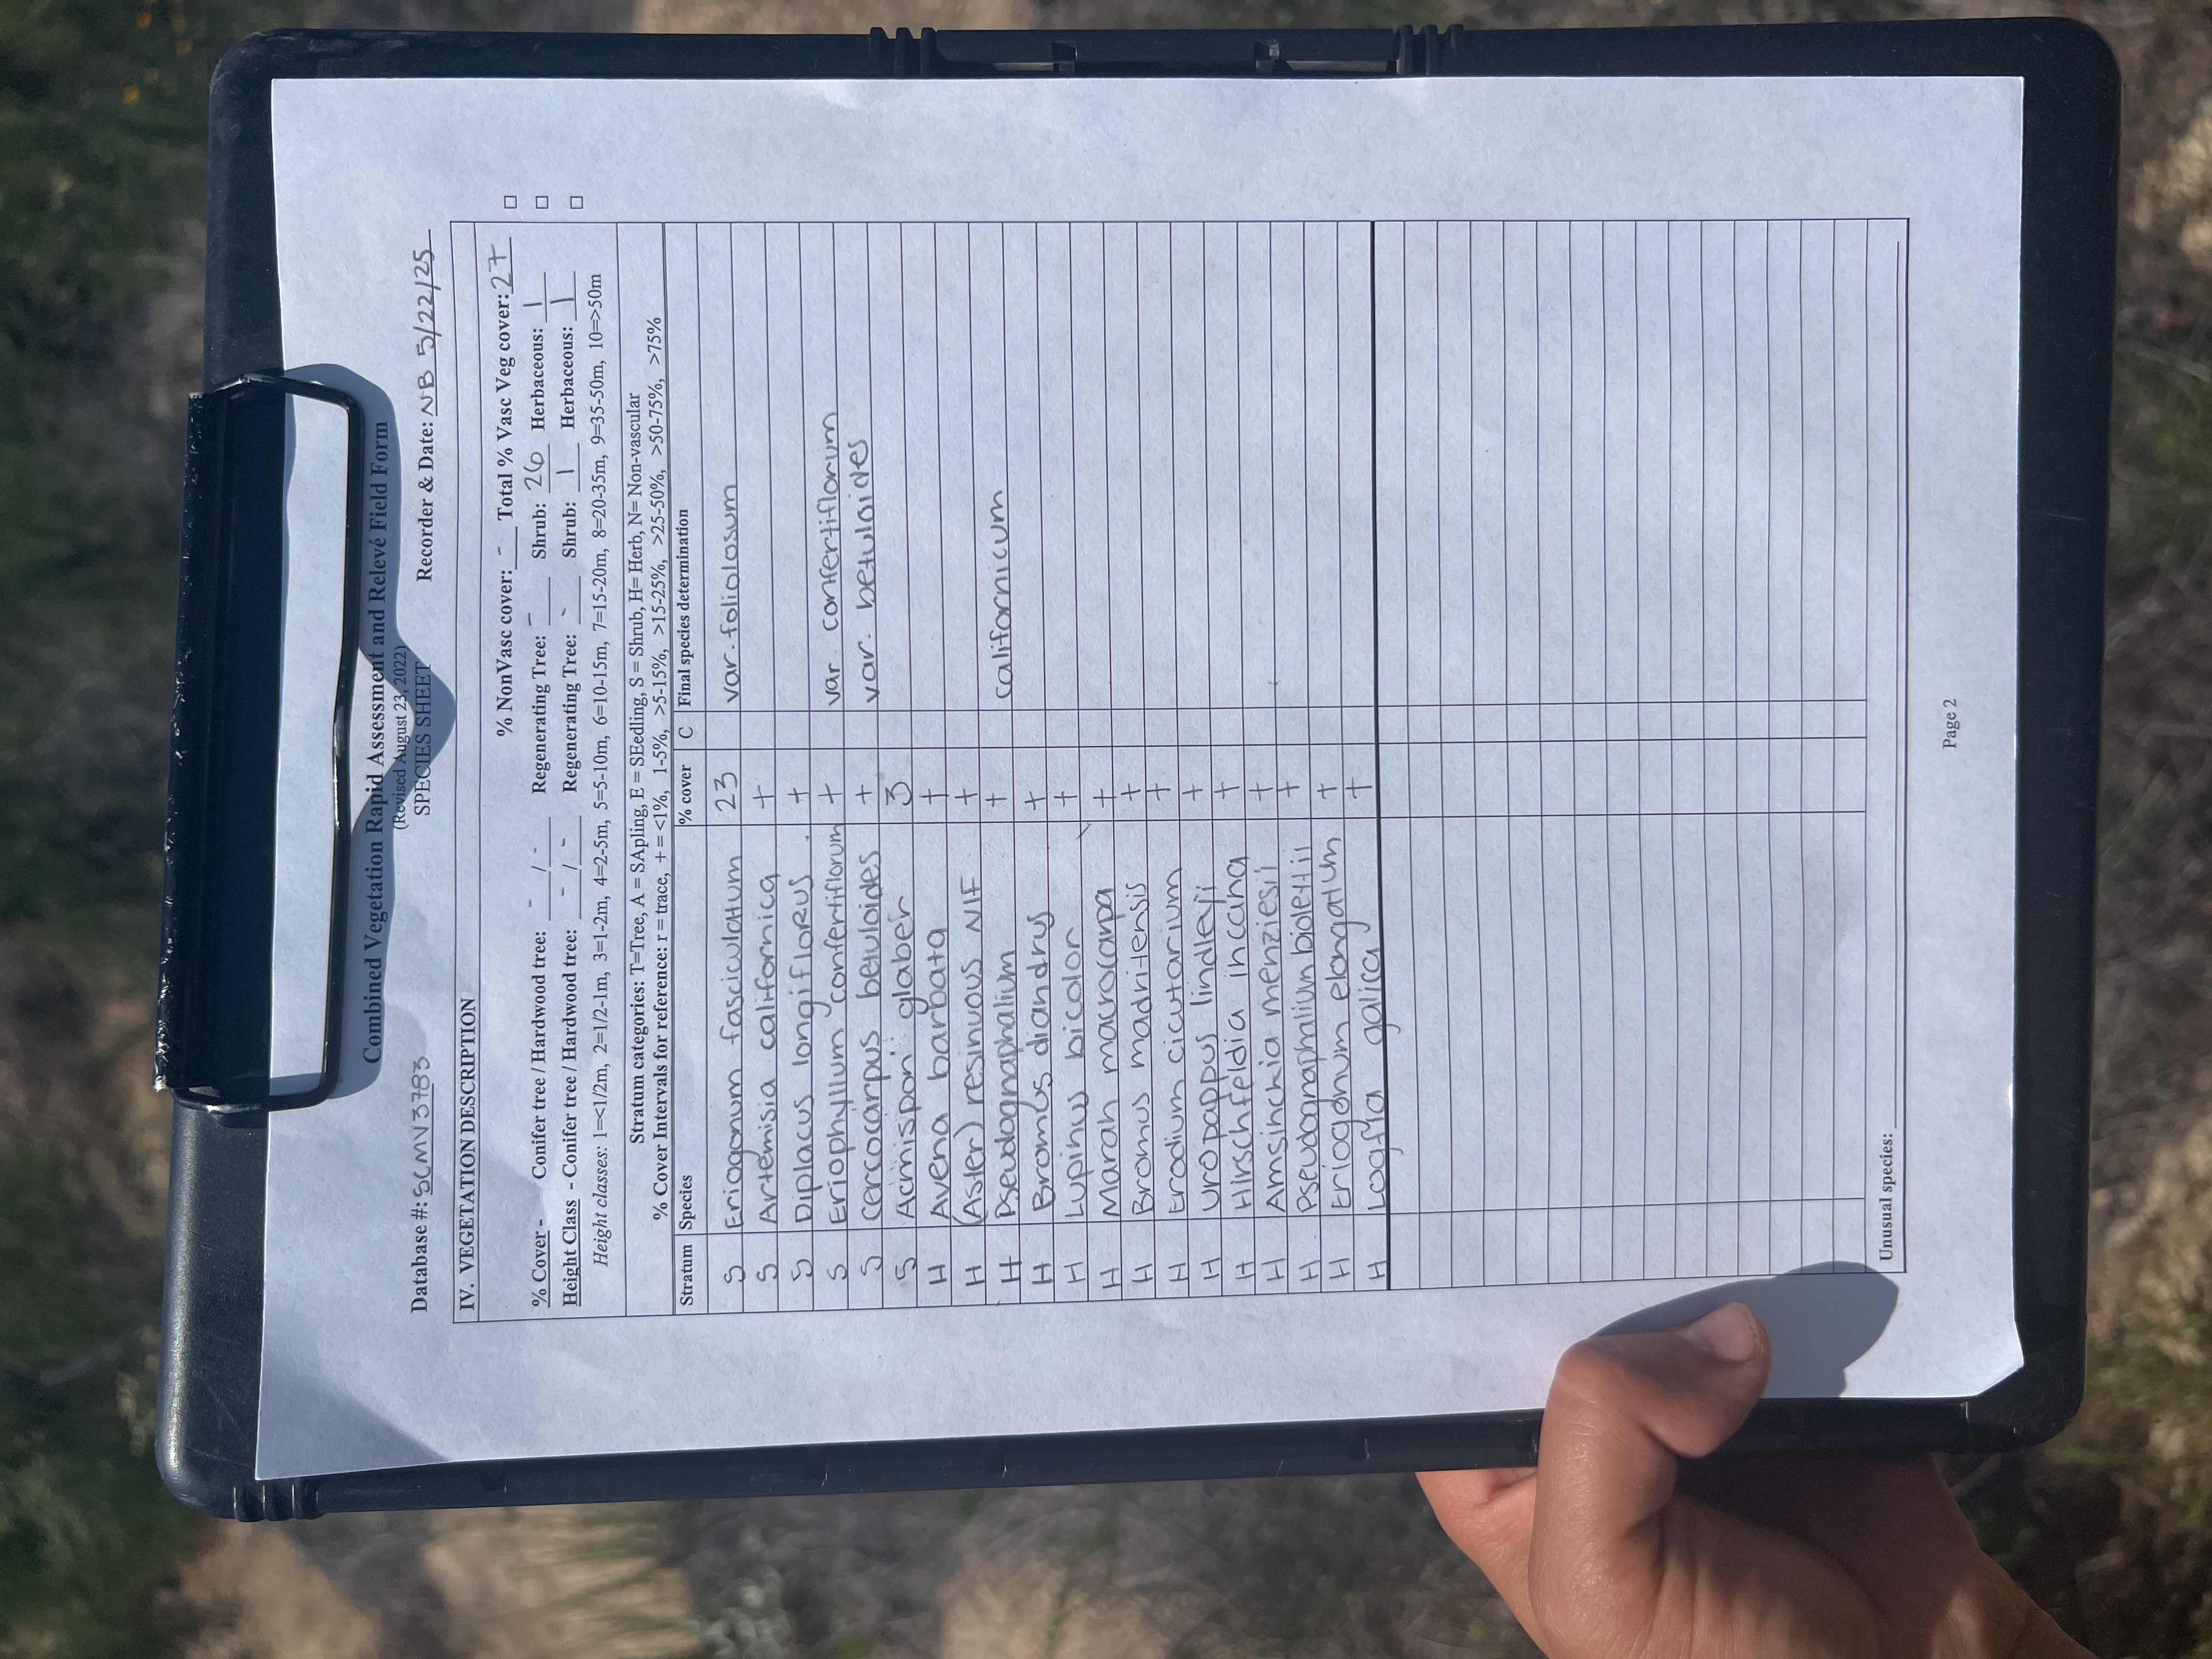 Combined Vegetation Rapid Assessment and Relevé Field Form
(Revised August 23, 2022)
SPECIES SHEET
Database #: SCMV3783 Recorder & Date: NB 5/22/25
IV. VEGETATION DESCRIPTION
% NonVasc cover: - Total % Vasc Veg cover: 27
% Cover - Conifer tree / Hardwood tree: - / - Regenerating Tree: - Shrub: 26 Herbaceous: 1
Height Class - Conifer tree / Hardwood tree: - / - Regenerating Tree: - Shrub: 1 Herbaceous: 1
Height classes: 1=<1/2m, 2=1/2-1m, 3=1-2m, 4=2-5m, 5=5-10m, 6=10-15m, 7=15-20m, 8=20-35m, 9=35-50m, 10=>50m
Stratum categories: T=Tree, A = SApling, E = SEedling, S = Shrub, H= Herb, N= Non-vascular
% Cover Intervals for reference: r = trace, + = <1%, 1-5%, >5-15%, >15-25%, >25-50%, >50-75%, >75%
Stratum Species % cover C Final species determination
S Eriogonum fasciculatum 23 var. foliolosum
S Artemisia californica +
S Diplacus longiflorus +
S Eriophyllum confertiflorum + var confertiflorum
S Cercocarpus betuloides + var. betuloides
S Acmispon glaber 3
H Avena barbata +
H (Aster) resinuous NIF +
H Pseudognaphalium + californicum
H Bromus diandrus +
H Lupinus bicolor +
H Marah macrocarpa +
H Bromus madritensis +
H Erodium cicutarium +
H Uropappus lindleyi +
H Hirschfeldia inccana +
H Amsinckia menziesii +
H Pseudognaphalium biolettii +
H Eriogonum elongatum +
H Logfia galica +
Unusual species:
Page 2